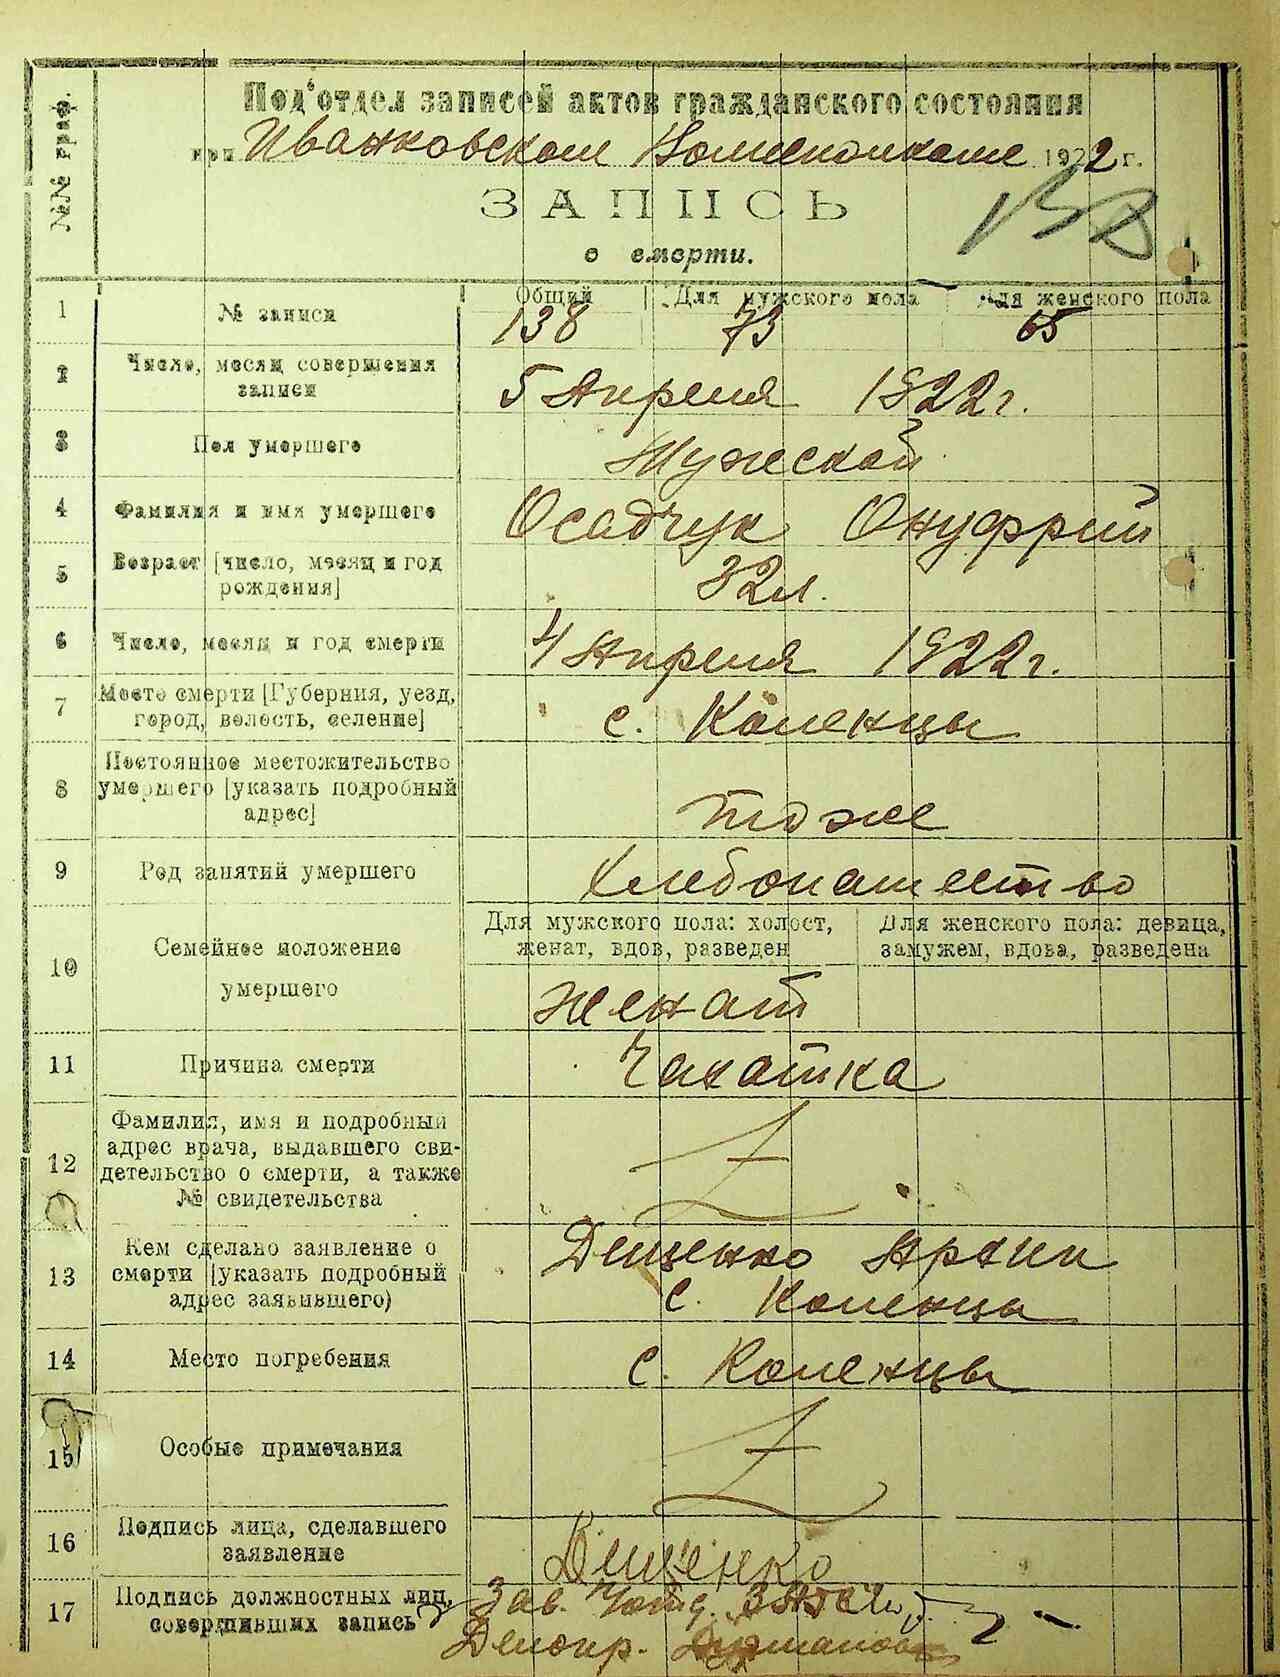 №№ граф.
Под'отдел записей актов гражданского состояния
при Иванковском Волисполкоме 1922 г.
ЗАПИСЬ
о смерти.
1 № записи Общий Для мужского пола Для женского пола
138 73 65
2 Число, месяц совершения записи
5 Апреля 1922 г.
3 Пол умершего Мужской
4 Фамилия и имя умершего Осадчук Онуфрий
5 Возраст [число, месяц и год рождения]
32 л.
6 Число, месяц и год смерти 4 Апреля 1922 г.
7 Место смерти [Губерния, уезд,
город, волость, селение] с. Коленцы
Постоянное местожительство
8 умершего [указать подробный
адрес] тоже
9 Род занятий умершего Хлебопашество
10 Семейное положение
умершего
Для мужского пола: холост,
женат, вдов, разведен
Для женского пола: девица,
замужем, вдова, разведена
женат
11 Причина смерти Чахотка
12 Фамилия, имя и подробный
адрес врача, выдавшего сви-
детельство о смерти, а также
№ свидетельства
13 Кем сделано заявление о
смерти [указать подробный
адрес заявившего)
Дещенко
с. Коленцы
14 Место погребения с. Коленцы
15 Особые примечания
16 Подпись лица, сделавшего
заявление
Дещенко
17 Подпись должностных лиц,
совершивших запись
Зав.
Делопр.